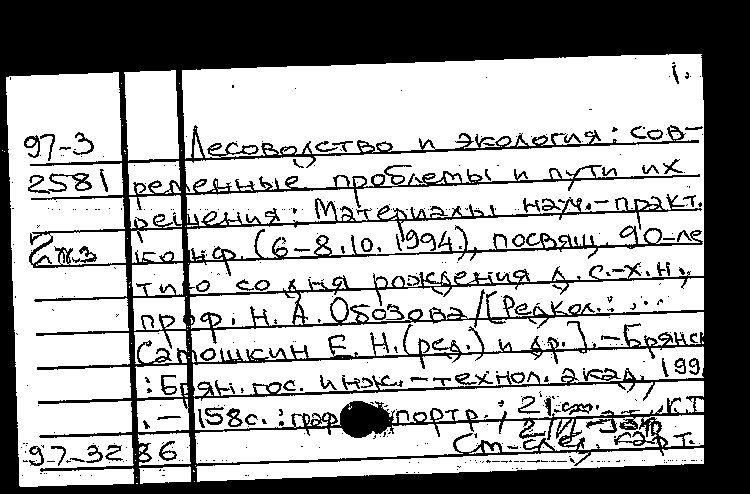 1.
97-3 Лесоводство и экология: сов-
2581 ременные проблемы и пути их
решения: Материалы науч.-практ.
конф. (6-8.10.1994.), посвящ. 90-ле
тию со дня рождения д. с.-х. н.,
проф. Н. А. Обозова / [Редкол.: ...
Самошкин Е. Н. (ред.) и др.]. - Брянск
: Брян. гос. инж.-технол. акад., 199
. - 158с. : граф портр. ; 21 см.
97-3286 См. след. карт.